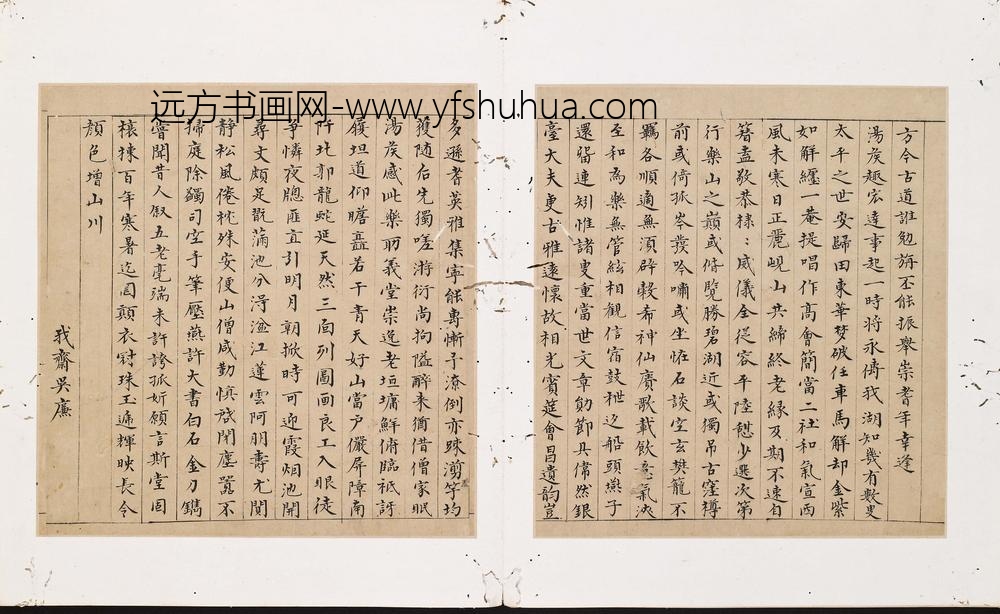 远方书画网-www.yfshuhua.com
方今古道誰勉旃丕能振舉崇耆年幸逢
湯侯趣宏達事起一時將永儔我湖知幾有數叟
太平之世安歸田東華夢破任車馬解却金紫
如解纏一菴提唱作高會簡當二社和氣宣西
風未寒日正麗峴山共締終老緣及期不速自
簪盍敬恭棣:威儀全從容平陸憩少選次第
行樂山之巔或脩覽勝碧湖近或獨吊古窪樽
前或倚孤岑發吟嘯或坐恠石談空玄樊籠不
羈各順適無須辟穀希神仙賡歌載飲意氣決
至和為樂無管絃相觀信宿鼓枻迄船頭燕子
還留連矧惟諸叟重當世文章勛節具偹然銀
臺大夫更古雅遠懷故相光賓筵會昌遺韵豈
多遜耆英雅集寧能專慚予潦倒亦踈澷竽均
獲随后先獨嗟游衍尚拘隘醉来徜借僧家眠
湯侯感此樂助義堂崇逸老垣墉鮮俯臨祗訝
履坦道仰瞻矗若干青天好山當户儼屏障南
阡北郭龍蛇延天然三面列圖画良工入眼徒
爭憐夜牕匪宜引明月朝掀時可迎霞烟池開
尋丈頗足翫蒲池分浔滄江蓮雲阿朋壽尤閴
静松風倦枕殊安便山僧咸勤慎啓閉塵囂不
掃庭除蠲司空手筆壓燕許大書白石金刀鐫
嘗聞昔人叙五老毫端未許誇孤妍願言斯堂固
榱棟百年寒暑迄囘顛衣冠珠玉遞輝映長令
顏色增山川
我齋吳廉